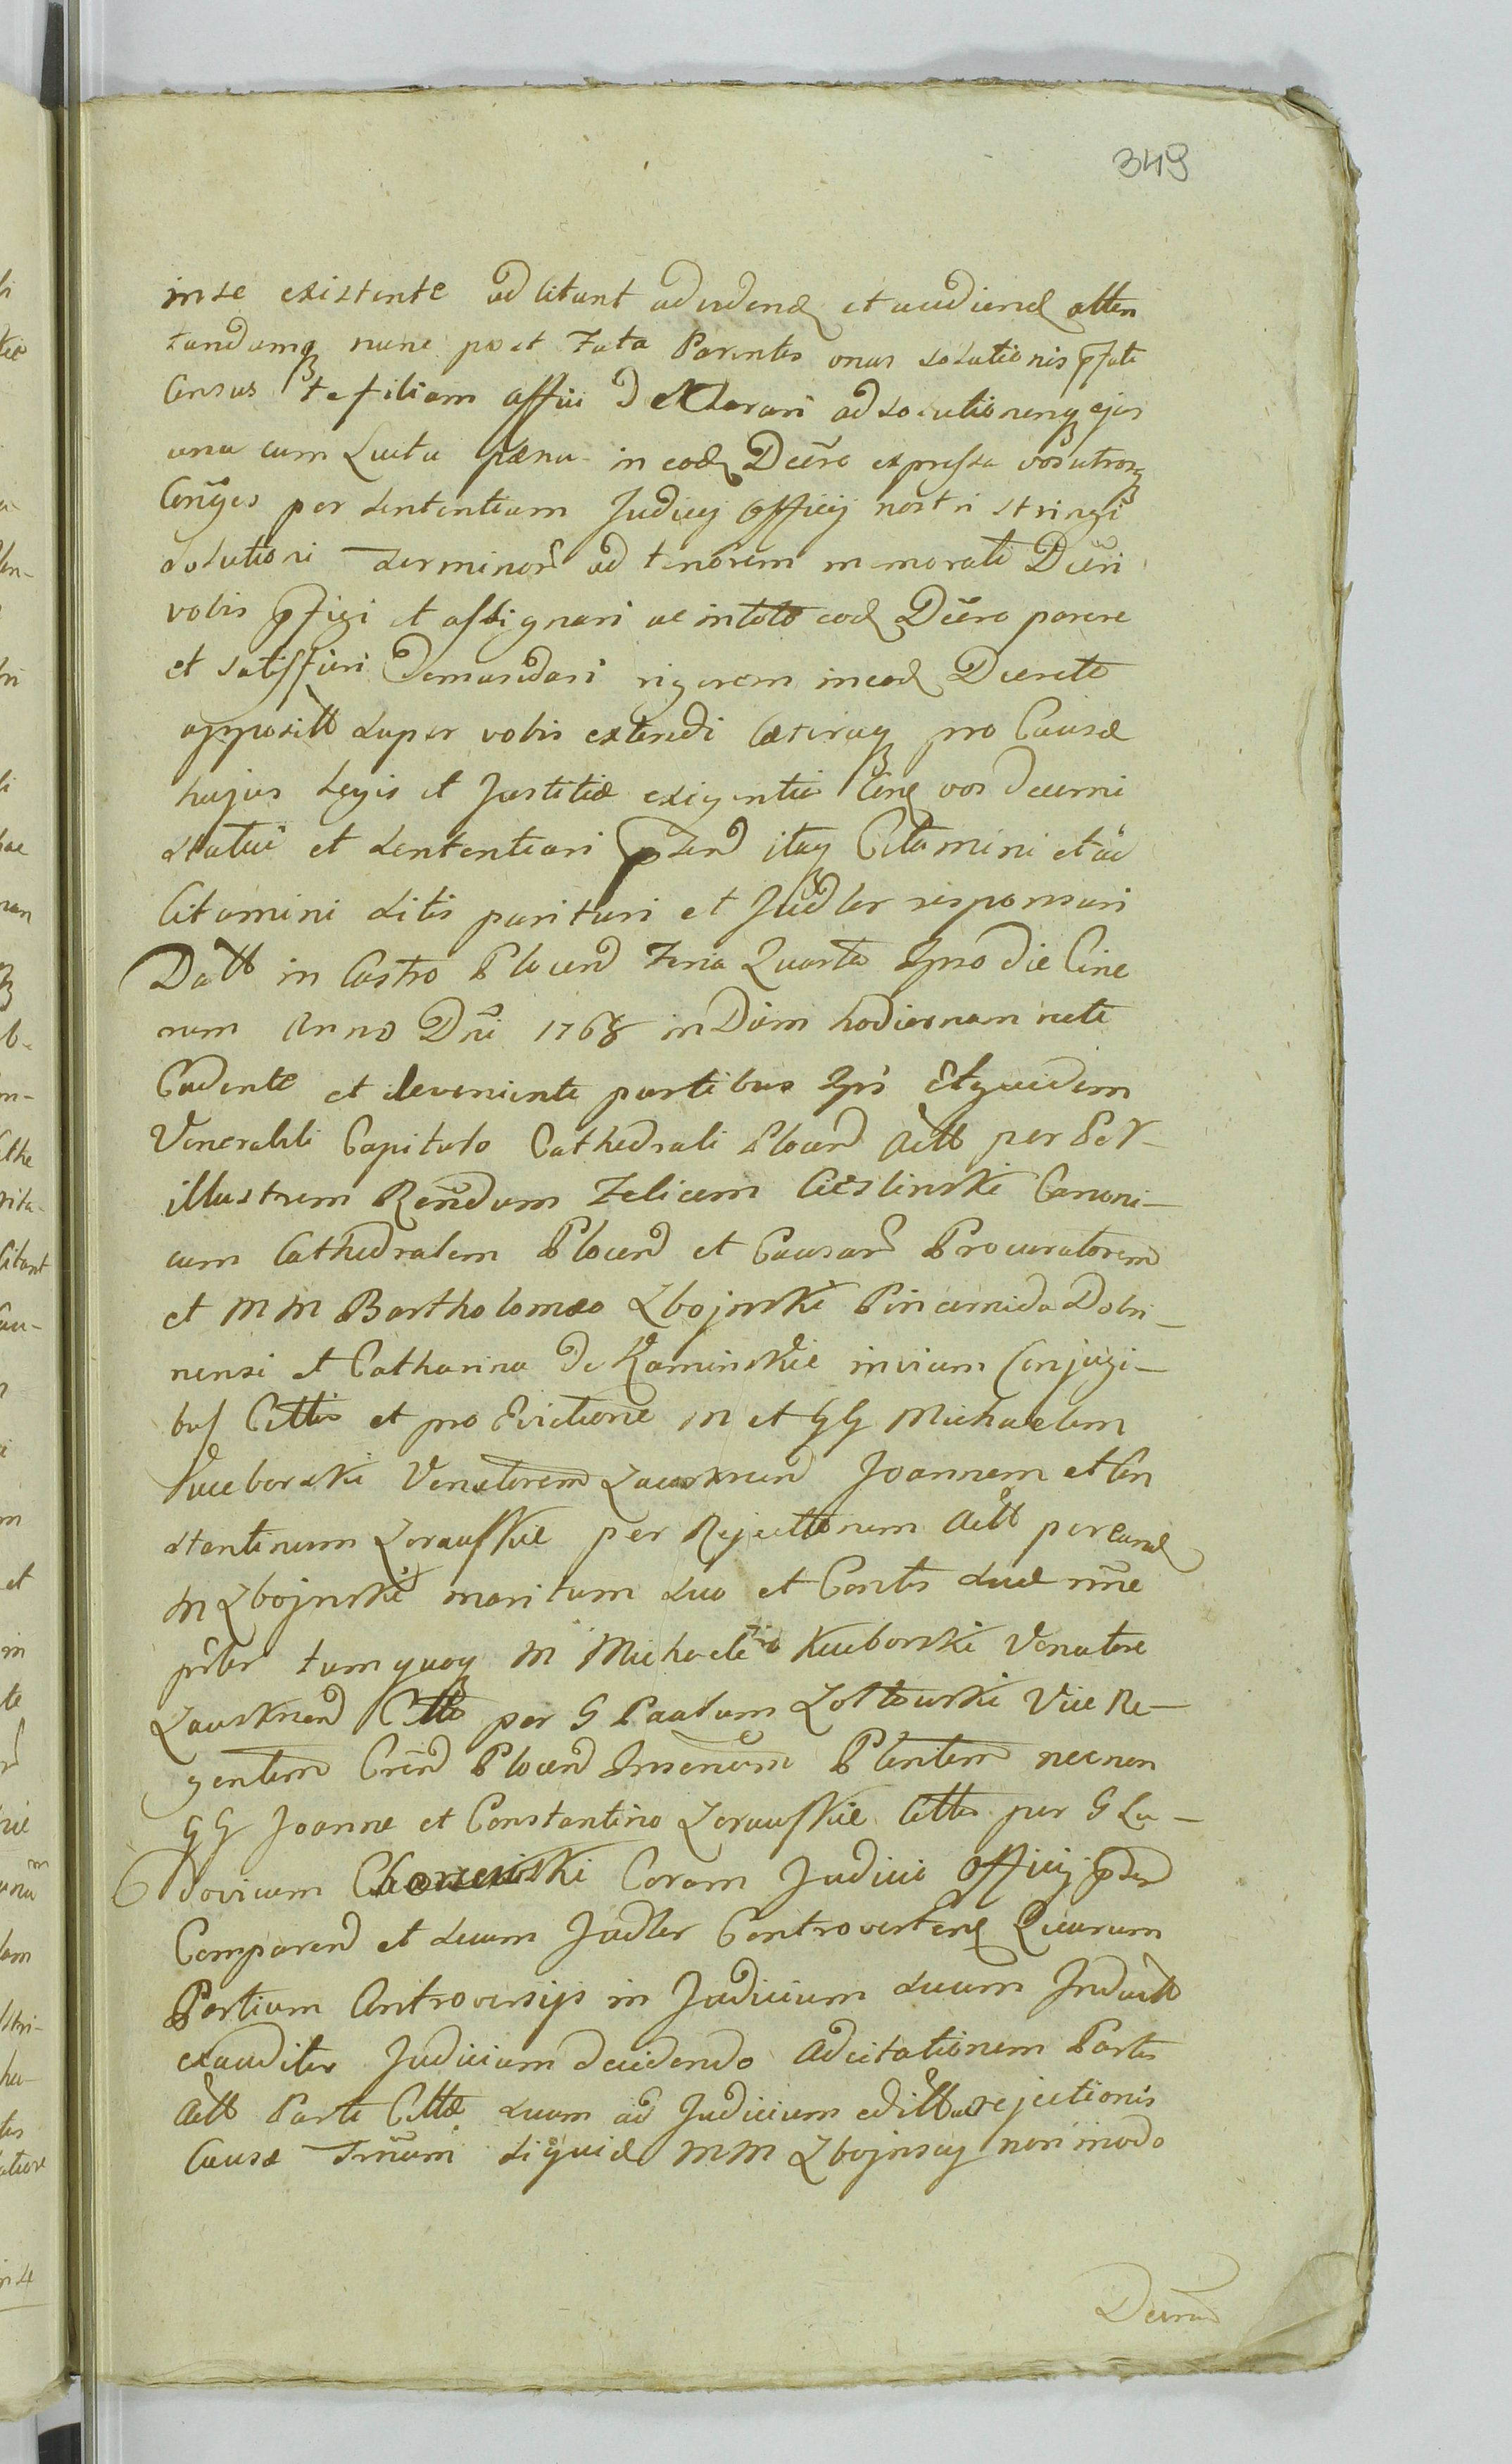 349
in se existente adcitant ad videnđ et audienđ atten
tandumq nunc post Fata Parentis onus solutionis pfati
Census te filiam affici declarari ad solutionemq ejus
una cum Luita pæna in eođ Decro expressa vos utrosq
Conges per sententiam Judicij Officij nostri stringi
solutioni Terminor ad tenorem memorati Decri
vobis pfigi et assignari ac in toto eođ Decro parere
et satisfieri Demandari rigorem in eođ Decreto
appositt super vobis extendi Cæteraq pro Causæ
hujus Legis et Justitiæ exigentia Cene vos decerni
statui et sententiari pferd itaq Citamini et ad
Citamini Litis parituri et Judlr responsuri
Datt in Castro Plocen Feria Quarta Ipso die Cine
rum Anno Dni 1768 in Diem hodiernam rete
Cadente et deveniente partibus Ipis Et quidem
Venerabili Capitulo Cathedrali Plocen Actt per Per
illustrem Rendum Felicem Cieslinski Canoni-
cum Cathedralem Plocen et Causar Procuratorem
et MM Bartholomæo Zbojnski Pincernida Dobri-
nensi et Catharina de Kaminskie invicem Conjugi-
bus Cittis et pro Evictione M et GG Michaelem
Kueborski Venatorem Zawskrnen Joannem et Con
stantinum Zorawskie per Rejectionem Actt per eunđ
M Zbojnski maritum suo et Contis suæ nne
pr̃ter tum quoq M Michaele Kueborski Venatore
Zawskrnen Citto per G Paulum Zoltowski Vice Re-
gentem Cren Plocen Insenum Plentem necnon
GG Joanne et Constantino Zorawskie Cittis per G Lu-
dovicum Coram Judicio Officij pnti
Comparen et suum Judlr Controverten Quarum
Partium Controversijs in Judicium suum Inductt
exauditis Judicium decidendo Adcitationem Partis
Actt Parti Cittæ suum ad Judicium editt ac rejectionis
Causæ Trnum siquid MM Zbojnscy non modo
Decrnd